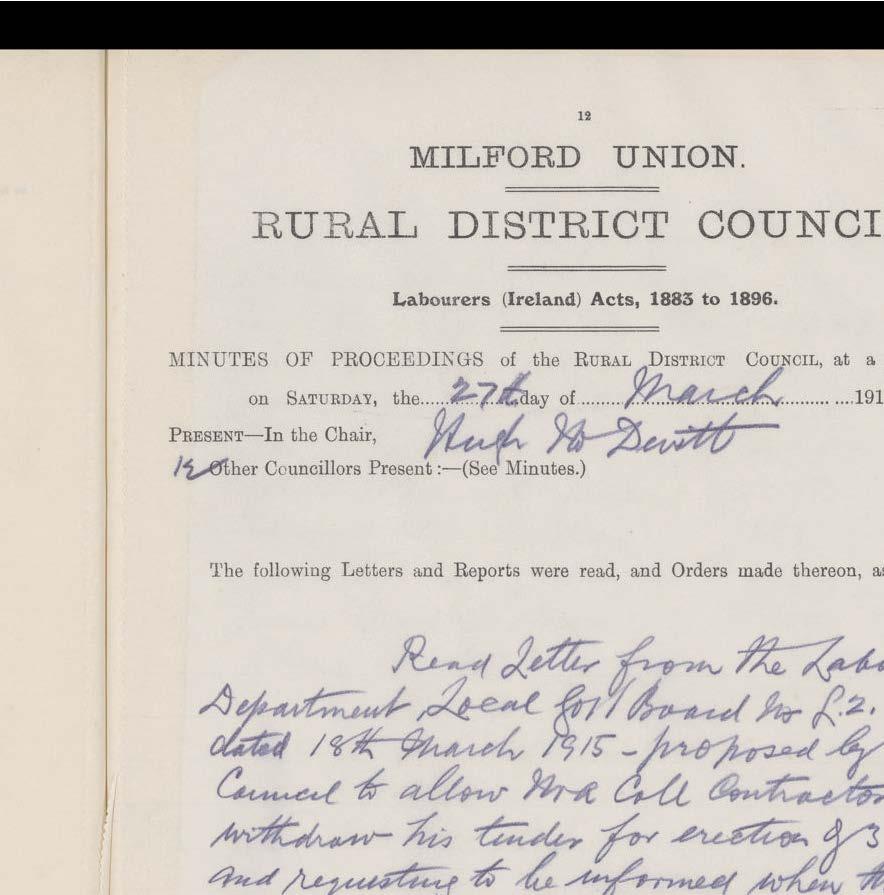 12
MILFORD UNION.
RURAL DISTRICT COUNCI
Labourers (Ireland) Acts, 1883 to 1896.
MINUTES OF PROCEEDINGS of the RURAL DISTRICT COUNCIL, at a
on SATURDAY, the 27th day of March 191
PRESENT—In the Chair, Hugh McDevitt
Other Councillors Present :—(See Minutes.)
The following Letters and Reports were read, and Orders made thereon, as
Read Letter from the Labo
Department Local Govt Board No L.2.
dated 18th March 1915 - proposed by
Council to allow Coll Contractor
withdraw his tender for erection of 3
and requesting to be informed when th